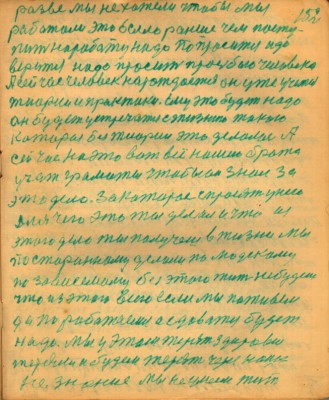 разве мы не хотели чтобы мы 152
работали это было раньше чем посту-
пит на работу надо попросить надо
надо просить просьбою человека
А сейчас человек нарождается он уже учен
теории и практики ему это будет надо
он будет встречаться с жизнью такою
которая без теории это делала А
сейчас на это вот всё нашего брата
учат грамоты чтобы он знал за
это дело. За которое спросят у него
для чего это ты делал и что из
этого дела ты получаем в жизни мы
по старинному делали по людскому
по зависимому без этого жить не будем
что из этого всего если мы поживем
да поработаем а следовать будет
надо. Мы у этом теряем здоровье
теряем и будем терять через наше
не знание мы не умеем жить